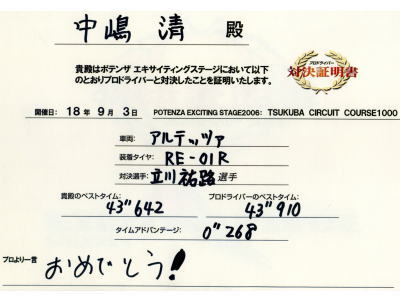 中嶋 清 殿
貴殿はポテンザ エキサイティングステージにおいて以下
のとおりプロドライバーと対決したことを証明いたします。
プロドライバー
対決証明書
開催日: 18年 9月 3日 POTENZA EXCITING STAGE2006: TSUKUBA CIRCUIT COURSE1000
車両: アルテッツァ
装着タイヤ: RE-01R
対決選手: 立川祐路 選手
貴殿のベストタイム: プロドライバーのベストタイム:
43"642 43"910
タイムアドバンテージ: 0"268
プロより一言 おめでとう!